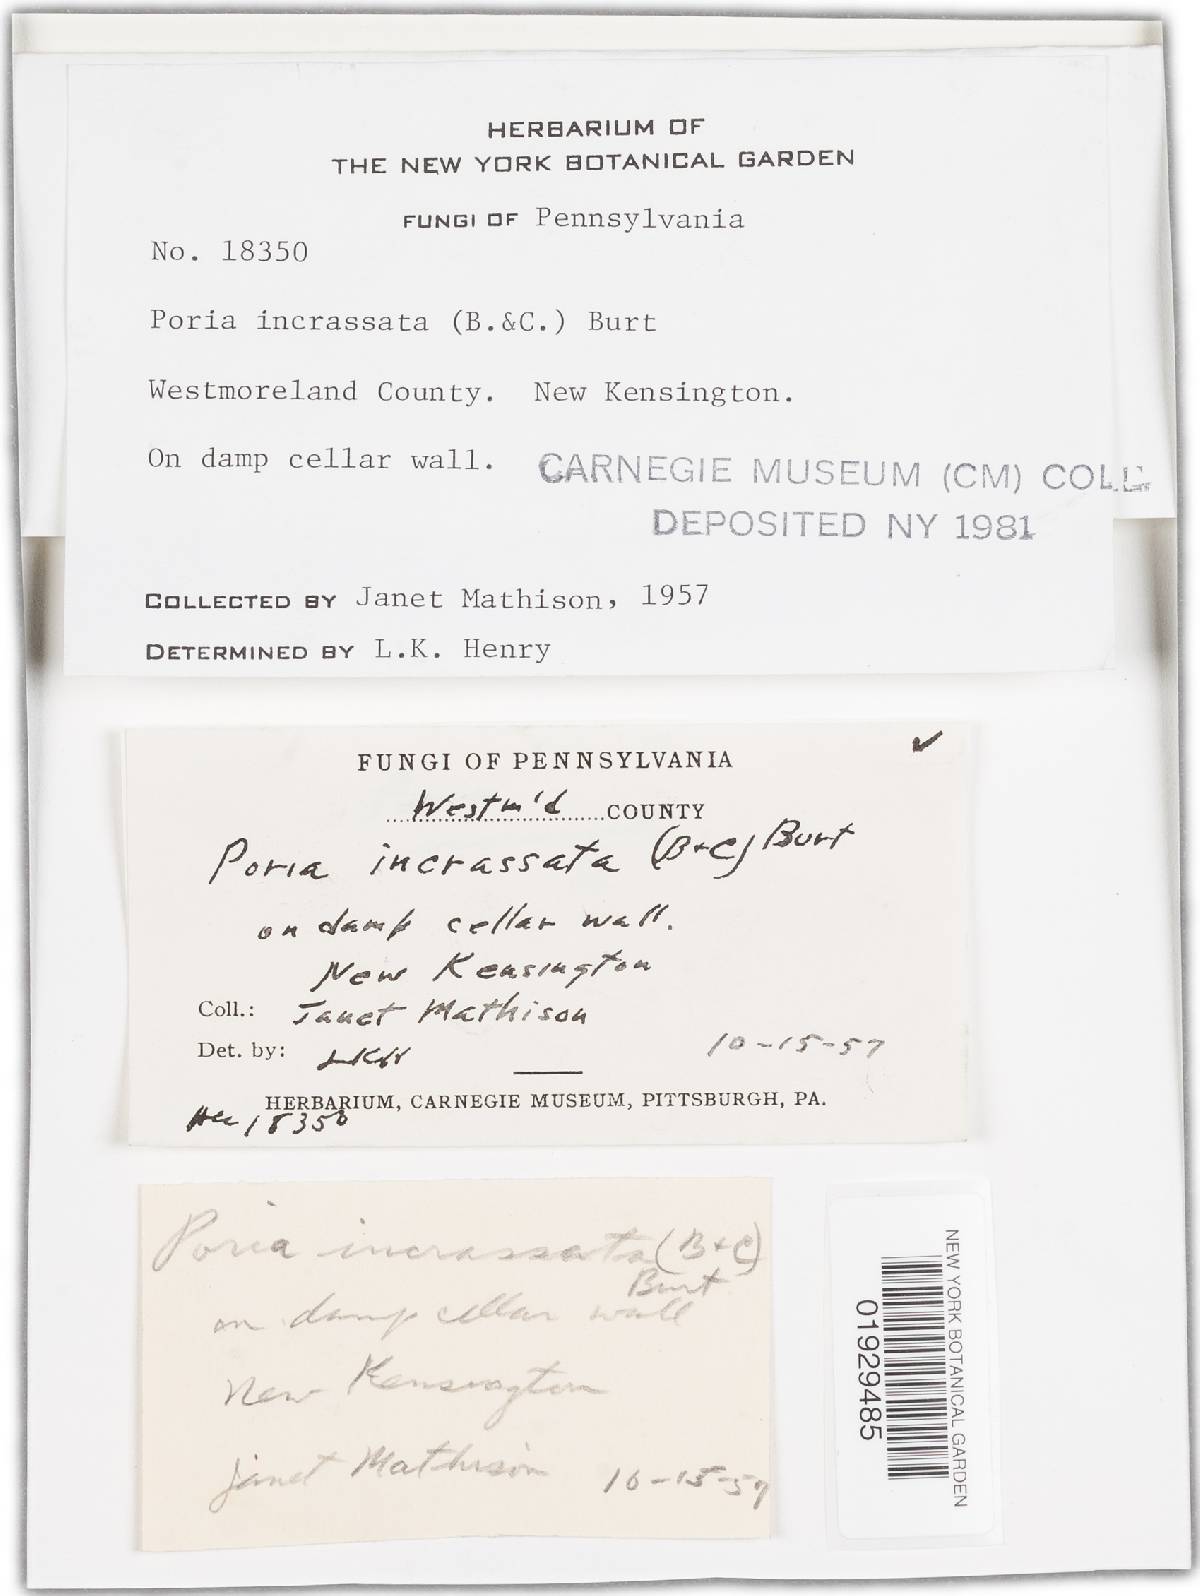 HERBARIUM OF
THE NEW YORK BOTANICAL GARDEN
FUNGI OF Pennsylvania
No. 18350
Poria incrassata (B.&C.) Burt
Westmoreland County. New Kensington.
On damp cellar wall.
CARNEGIE MUSEUM (CM) COLL.
DEPOSITED NY 1981
COLLECTED BY Janet Mathison, 1957
DETERMINED BY L.K. Henry
FUNGI OF PENNSYLVANIA
Westm'd COUNTY
Poria incrassata (B+C) Burt
on damp cellar wall.
New Kensington
Coll.: Janet Mathison
Det. by: LKH 10-15-57
HERBARIUM, CARNEGIE MUSEUM, PITTSBURGH, PA.
18350
Poria incrassata (B+C)
Burt
on damp cellar wall
New Kensington
Janet Mathison 10-15-57
NEW YORK BOTANICAL GARDEN
01929485